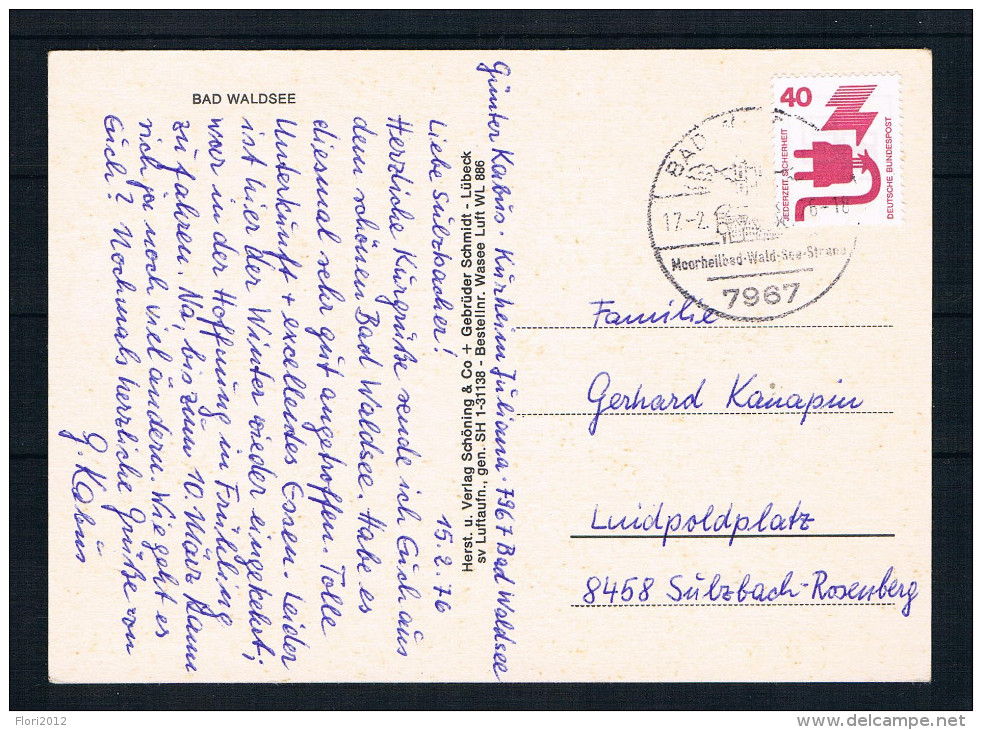 BAD WALDSEE
Günter Kabus · Kurheim Juliana · 7967 Bad Waldsee
15.2.76
Liebe Sulzbacher!
Herzliche Kurgrüße sende ich Euch aus
dem schönen Bad Waldsee. Habe es
diesmal sehr gut angetroffen. Tolle
Unterkunft + excellendes Essen. Leider
ist hier der Winter wieder eingekehrt;
war in der Hoffnung in Frühling
zu fahren. Na, bis zum 10. März kann
sich ja noch viel ändern. Wie geht es
Euch? Nochmals herzliche Grüße von
G. Kabus
Herst. u. Verlag Schöning & Co + Gebrüder Schmidt - Lübeck
sv Luftaufn., gen. SH 1-31138 - Bestellnr. Wasee Luft WL 886
40
JEDERZEIT SICHERHEIT
DEUTSCHE BUNDESPOST
BAD
17.-2. 76-18
Moorheilbad-Wald-See-Strand
7967
Familie
Gerhard Kanapin
Luidpoldplatz
8458 Sulzbach-Rosenberg
Flori2012
www.delcampe.net